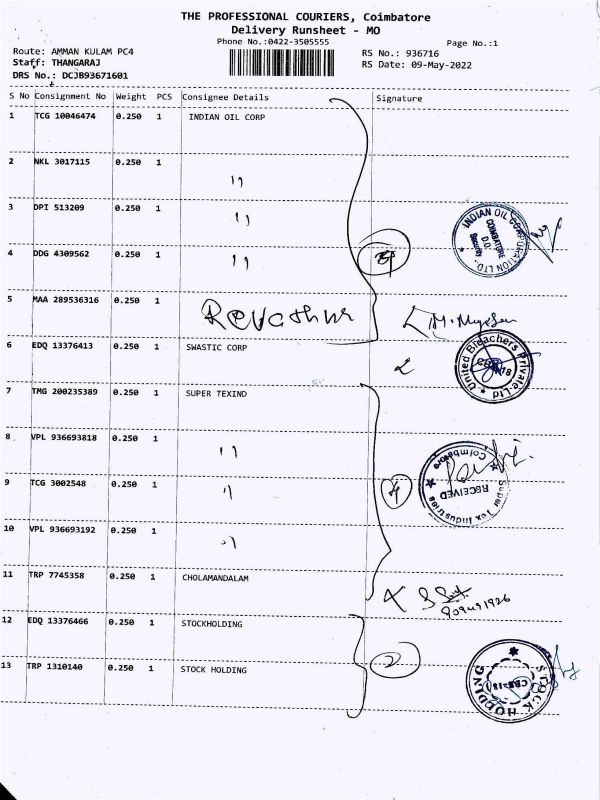 THE PROFESSIONAL COURIERS, Coimbatore
Delivery Runsheet - MO
Phone No.:0422-3505555
Page No.:1
Route: AMMAN KULAM PC4
RS No.: 936716
Staff: THANGARAJ
RS Date: 09-May-2022
DRS No.: DCJB93671601
S No Consignment No Weight PCS Consignee Details Signature
1 TCG 10046474 0.250 1 INDIAN OIL CORP
2 NKL 3017115 0.250 1 ''
3 DPI 513209 0.250 1 ''
INDIAN OIL CORPORATION LTD.,
COIMBATORE
D.O.
Security
4 DDG 4309562 0.250 1 ''
5 MAA 289536316 0.250 1 Revathur
6 EDQ 13376413 0.250 1 SWASTIC CORP
United Bleachers Private Ltd
7 TMG 200235389 0.250 1 SUPER TEXIND
8 VPL 936693818 0.250 1 ''
9 TCG 3002548 0.250 1 '' 4
Super Tex Industries
RECEIVED
Coimbatore
10 VPL 936693192 0.250 1 ''
11 TRP 7745358 0.250 1 CHOLAMANDALAM
12 EDQ 13376466 0.250 1 STOCKHOLDING
13 TRP 1310140 0.250 1 STOCK HOLDING 2
STOCK HOLDING
CBE-18